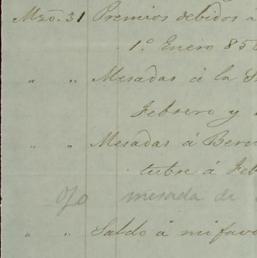 Mzo. 31 Premios debidos a
1.º Enero 850
" " Mesadas á la S
Febrero y
" " Mesadas á Bern
tubre á Feb
mesada de
" " Saldo á mi favo